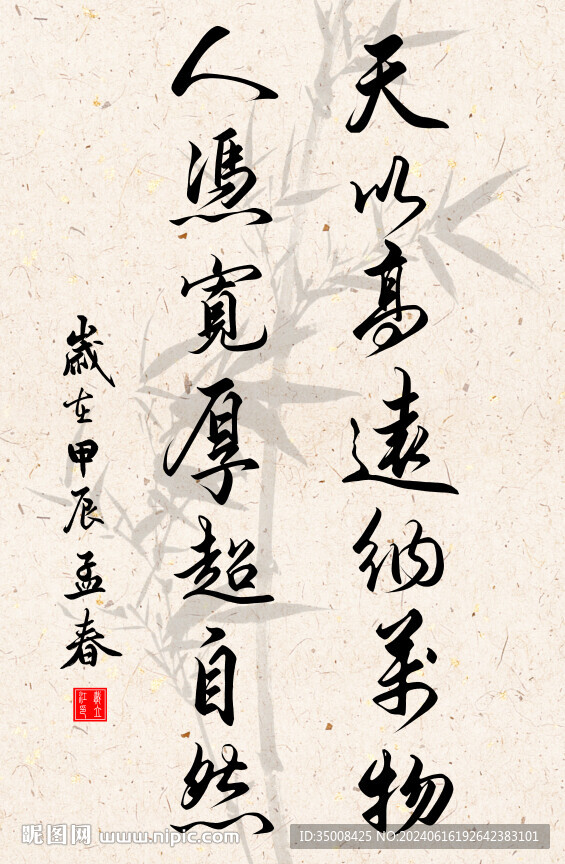 天以高遠納萬物
人憑寬厚超自然
歲在甲辰孟春
昵图网 www.nipic.com
ID:35008425 NO:20240616192642383101